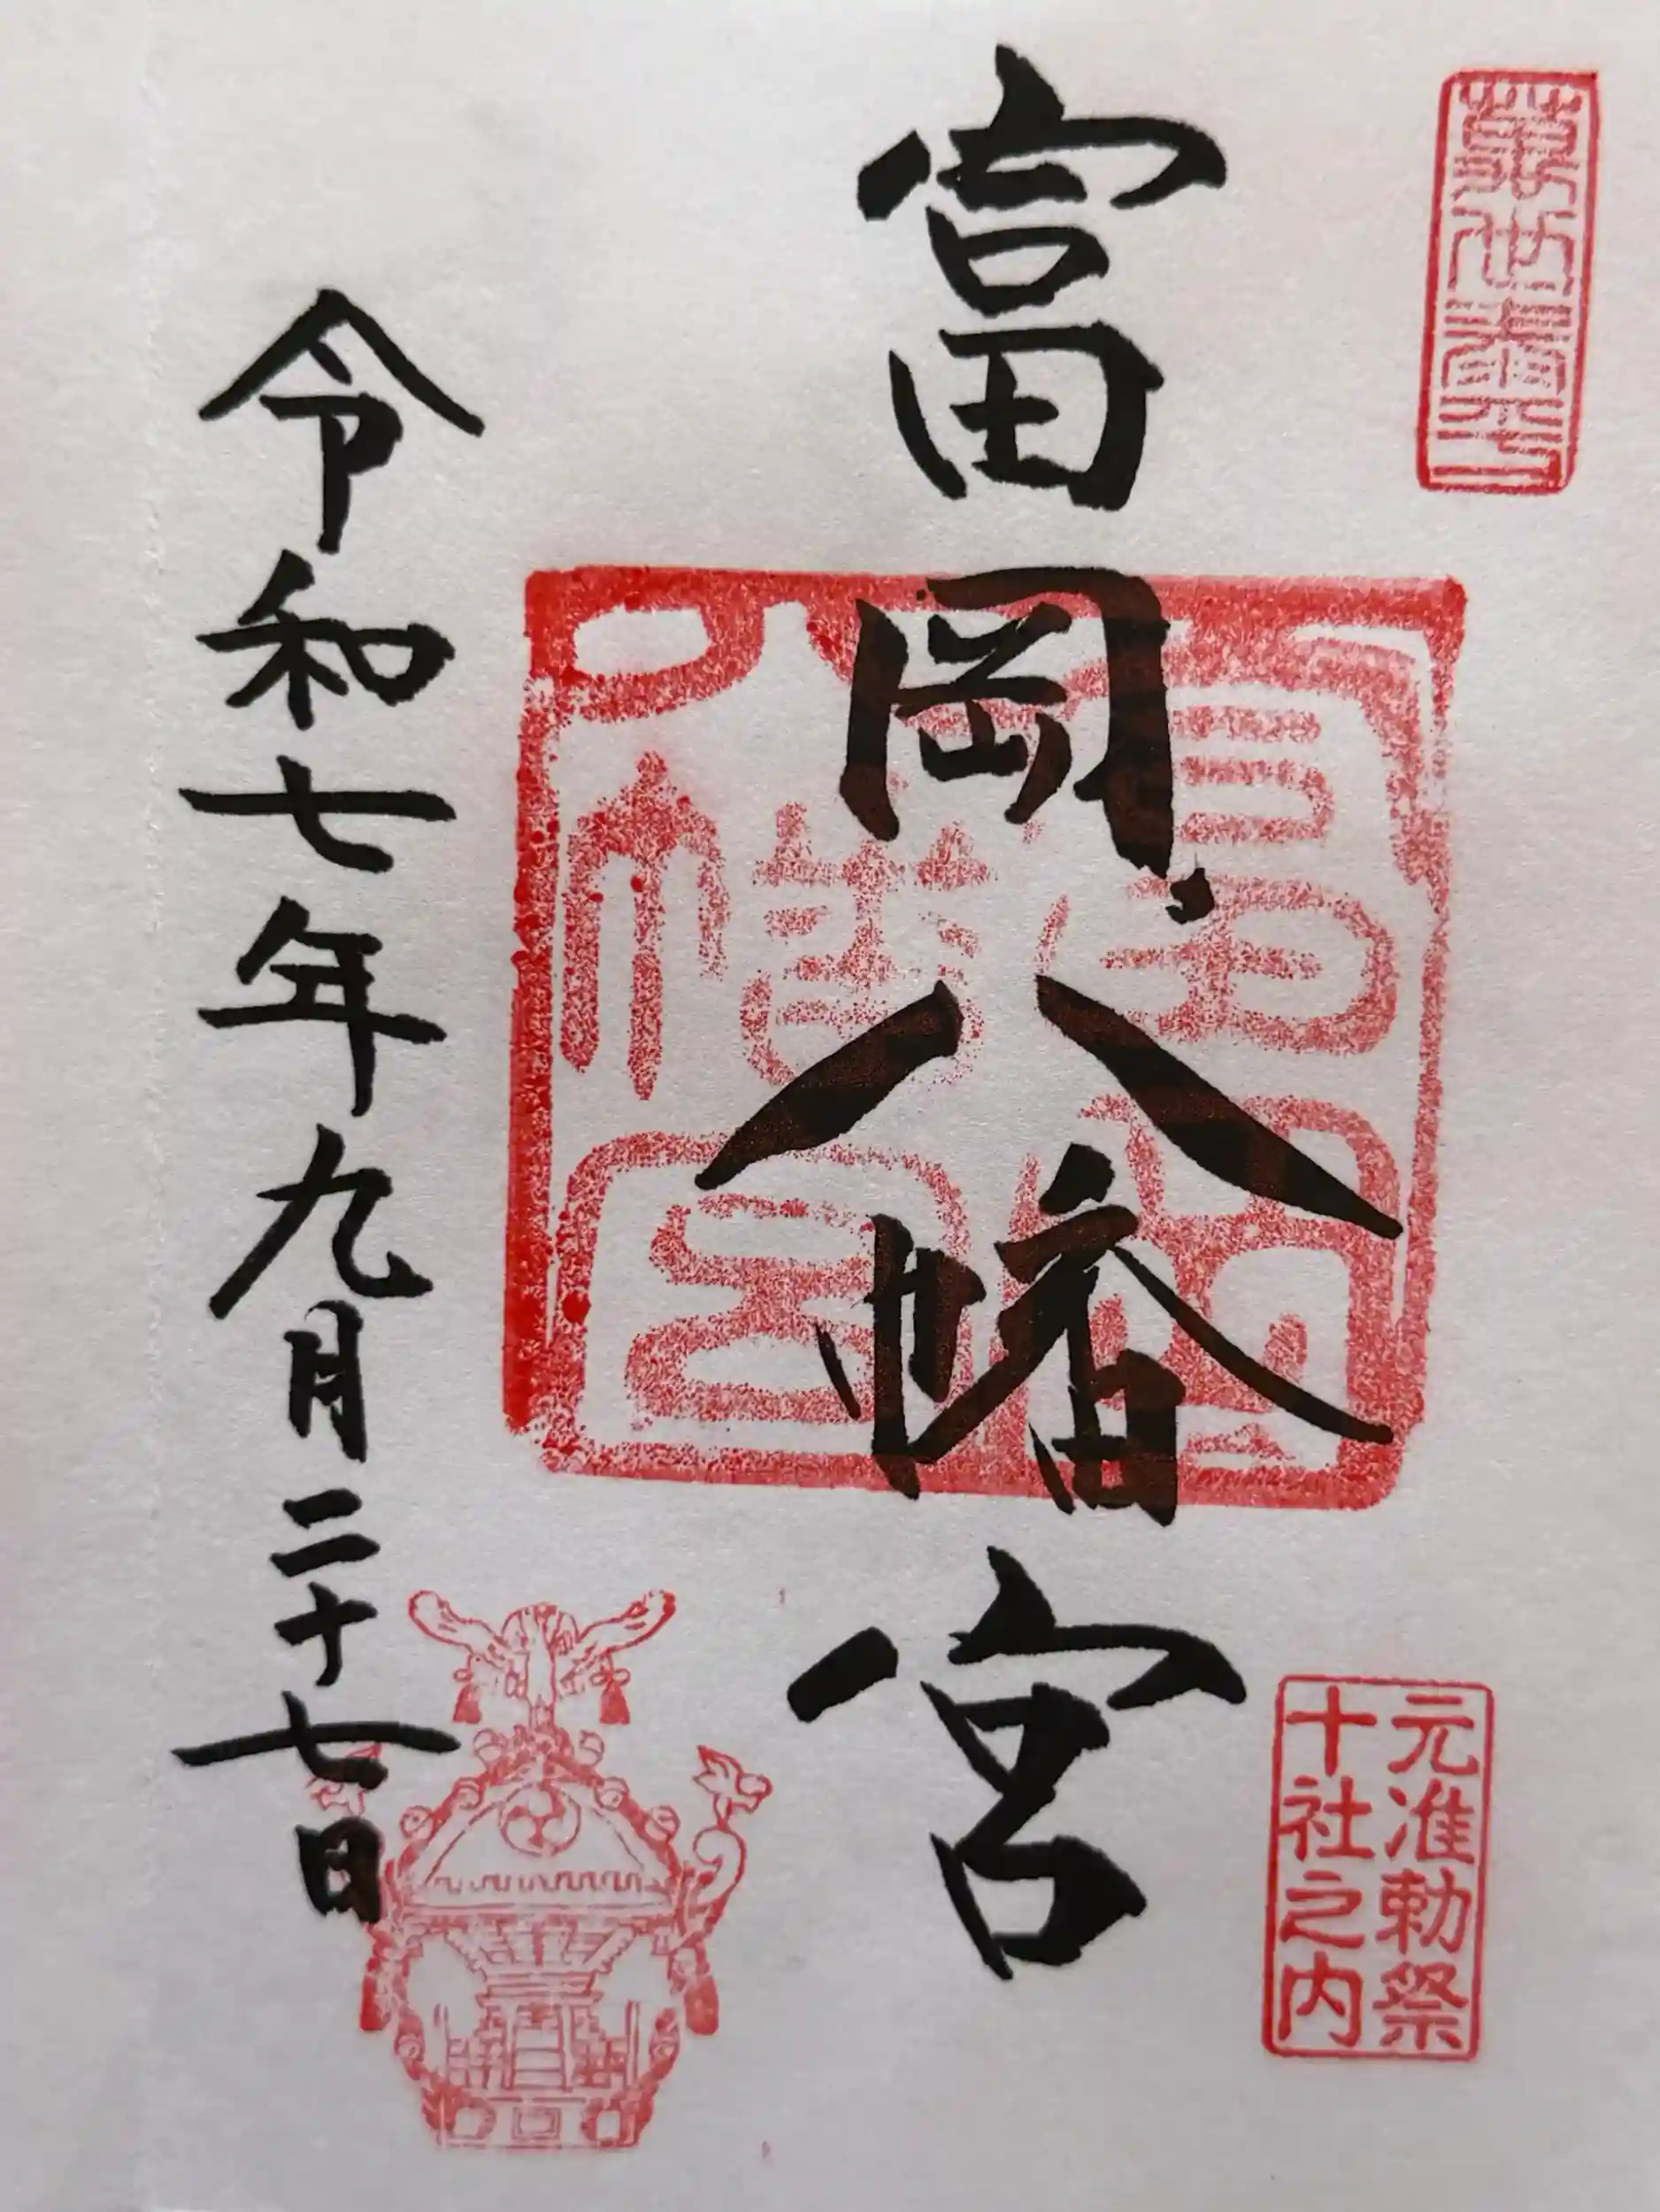 富岡八幡宮
元准勅祭
十社之内
令和七年九月二十七日
富岡
八幡宮